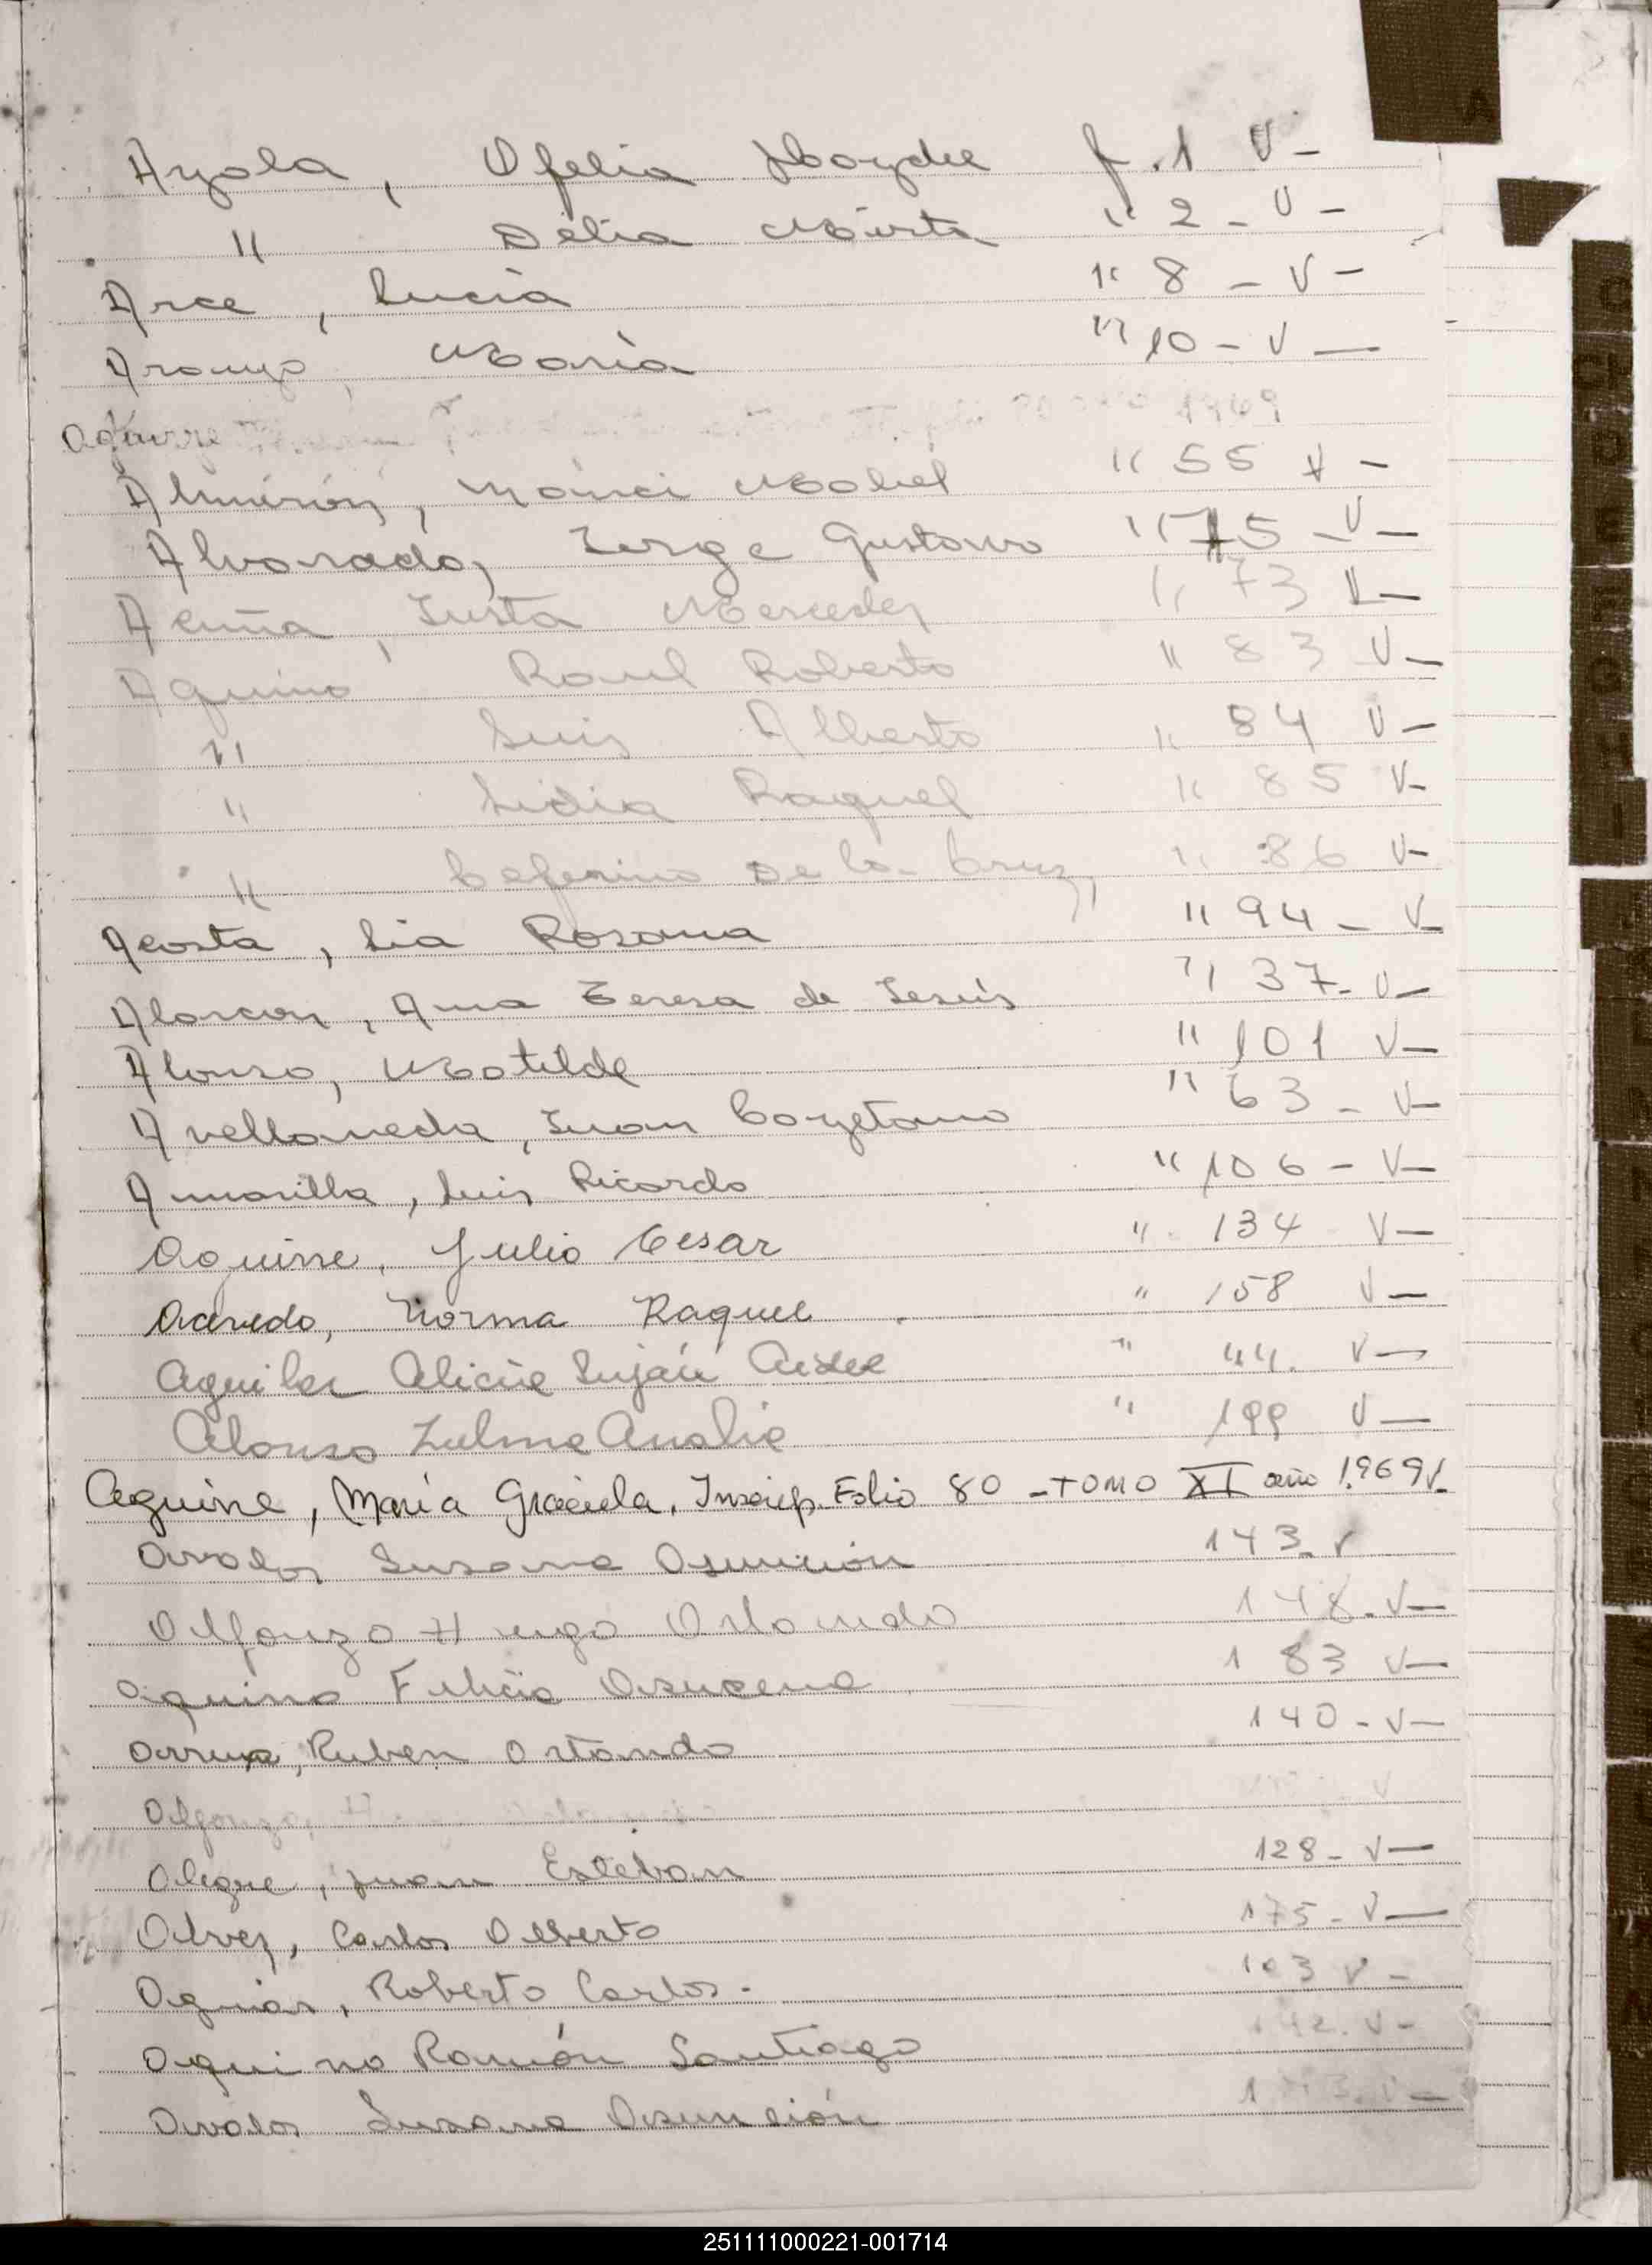 Ayala, Ofelia Haydee f. 1 V-
" Delia Mirta " 2 - V -
Arce, Lucia " 8 - V -
Araujo, María " 10 - V -
Aguirre 1969
Almirón, Mabel " 55 V -
Alvarado, Jorge Gustavo " 75 - V -
Acuña, Justa Mercedes " 73 V -
Aquino Raul Roberto " 83 V -
" Luis Alberto " 84 V -
" Lidia Raquel " 85 V-
" Ceferino De la Cruz, " 86 V-
Acosta, Lia Rosana " 94 - V-
Alarcon, Ana Teresa de Jesús " 37 - V-
Alonso, Matilde " 101 V-
Avellaneda, Juan Cayetano " 63 - V-
Amarilla, Luis Ricardo " 106 - V-
Aguirre, Julio Cesar " 134 V-
Acevedo, Norma Raquel " 158 V-
Aguilar Alicia Luján " 44. V-
Alonso Zulma Analia " 199 V-
Aguirre, María Graciela, Inscrip. Folio 80 - TOMO XI año 1969 V-
Avalos Susana Asunción 143. V
Alfonzo Hugo Orlando 148. V-
Aquino Felicia Azucena 183 V-
Arrua, Ruben Orlando 140 - V-
Alfonzo, H V
Alegre, Juan Esteban 128 - V-
Alvez, Carlos Alberto 175 - V-
Aguiar, Roberto Carlos. 103 V -
Aquino Ramón Santiago 142. V-
Avalos Susana Asunción V-
251111000221-001714